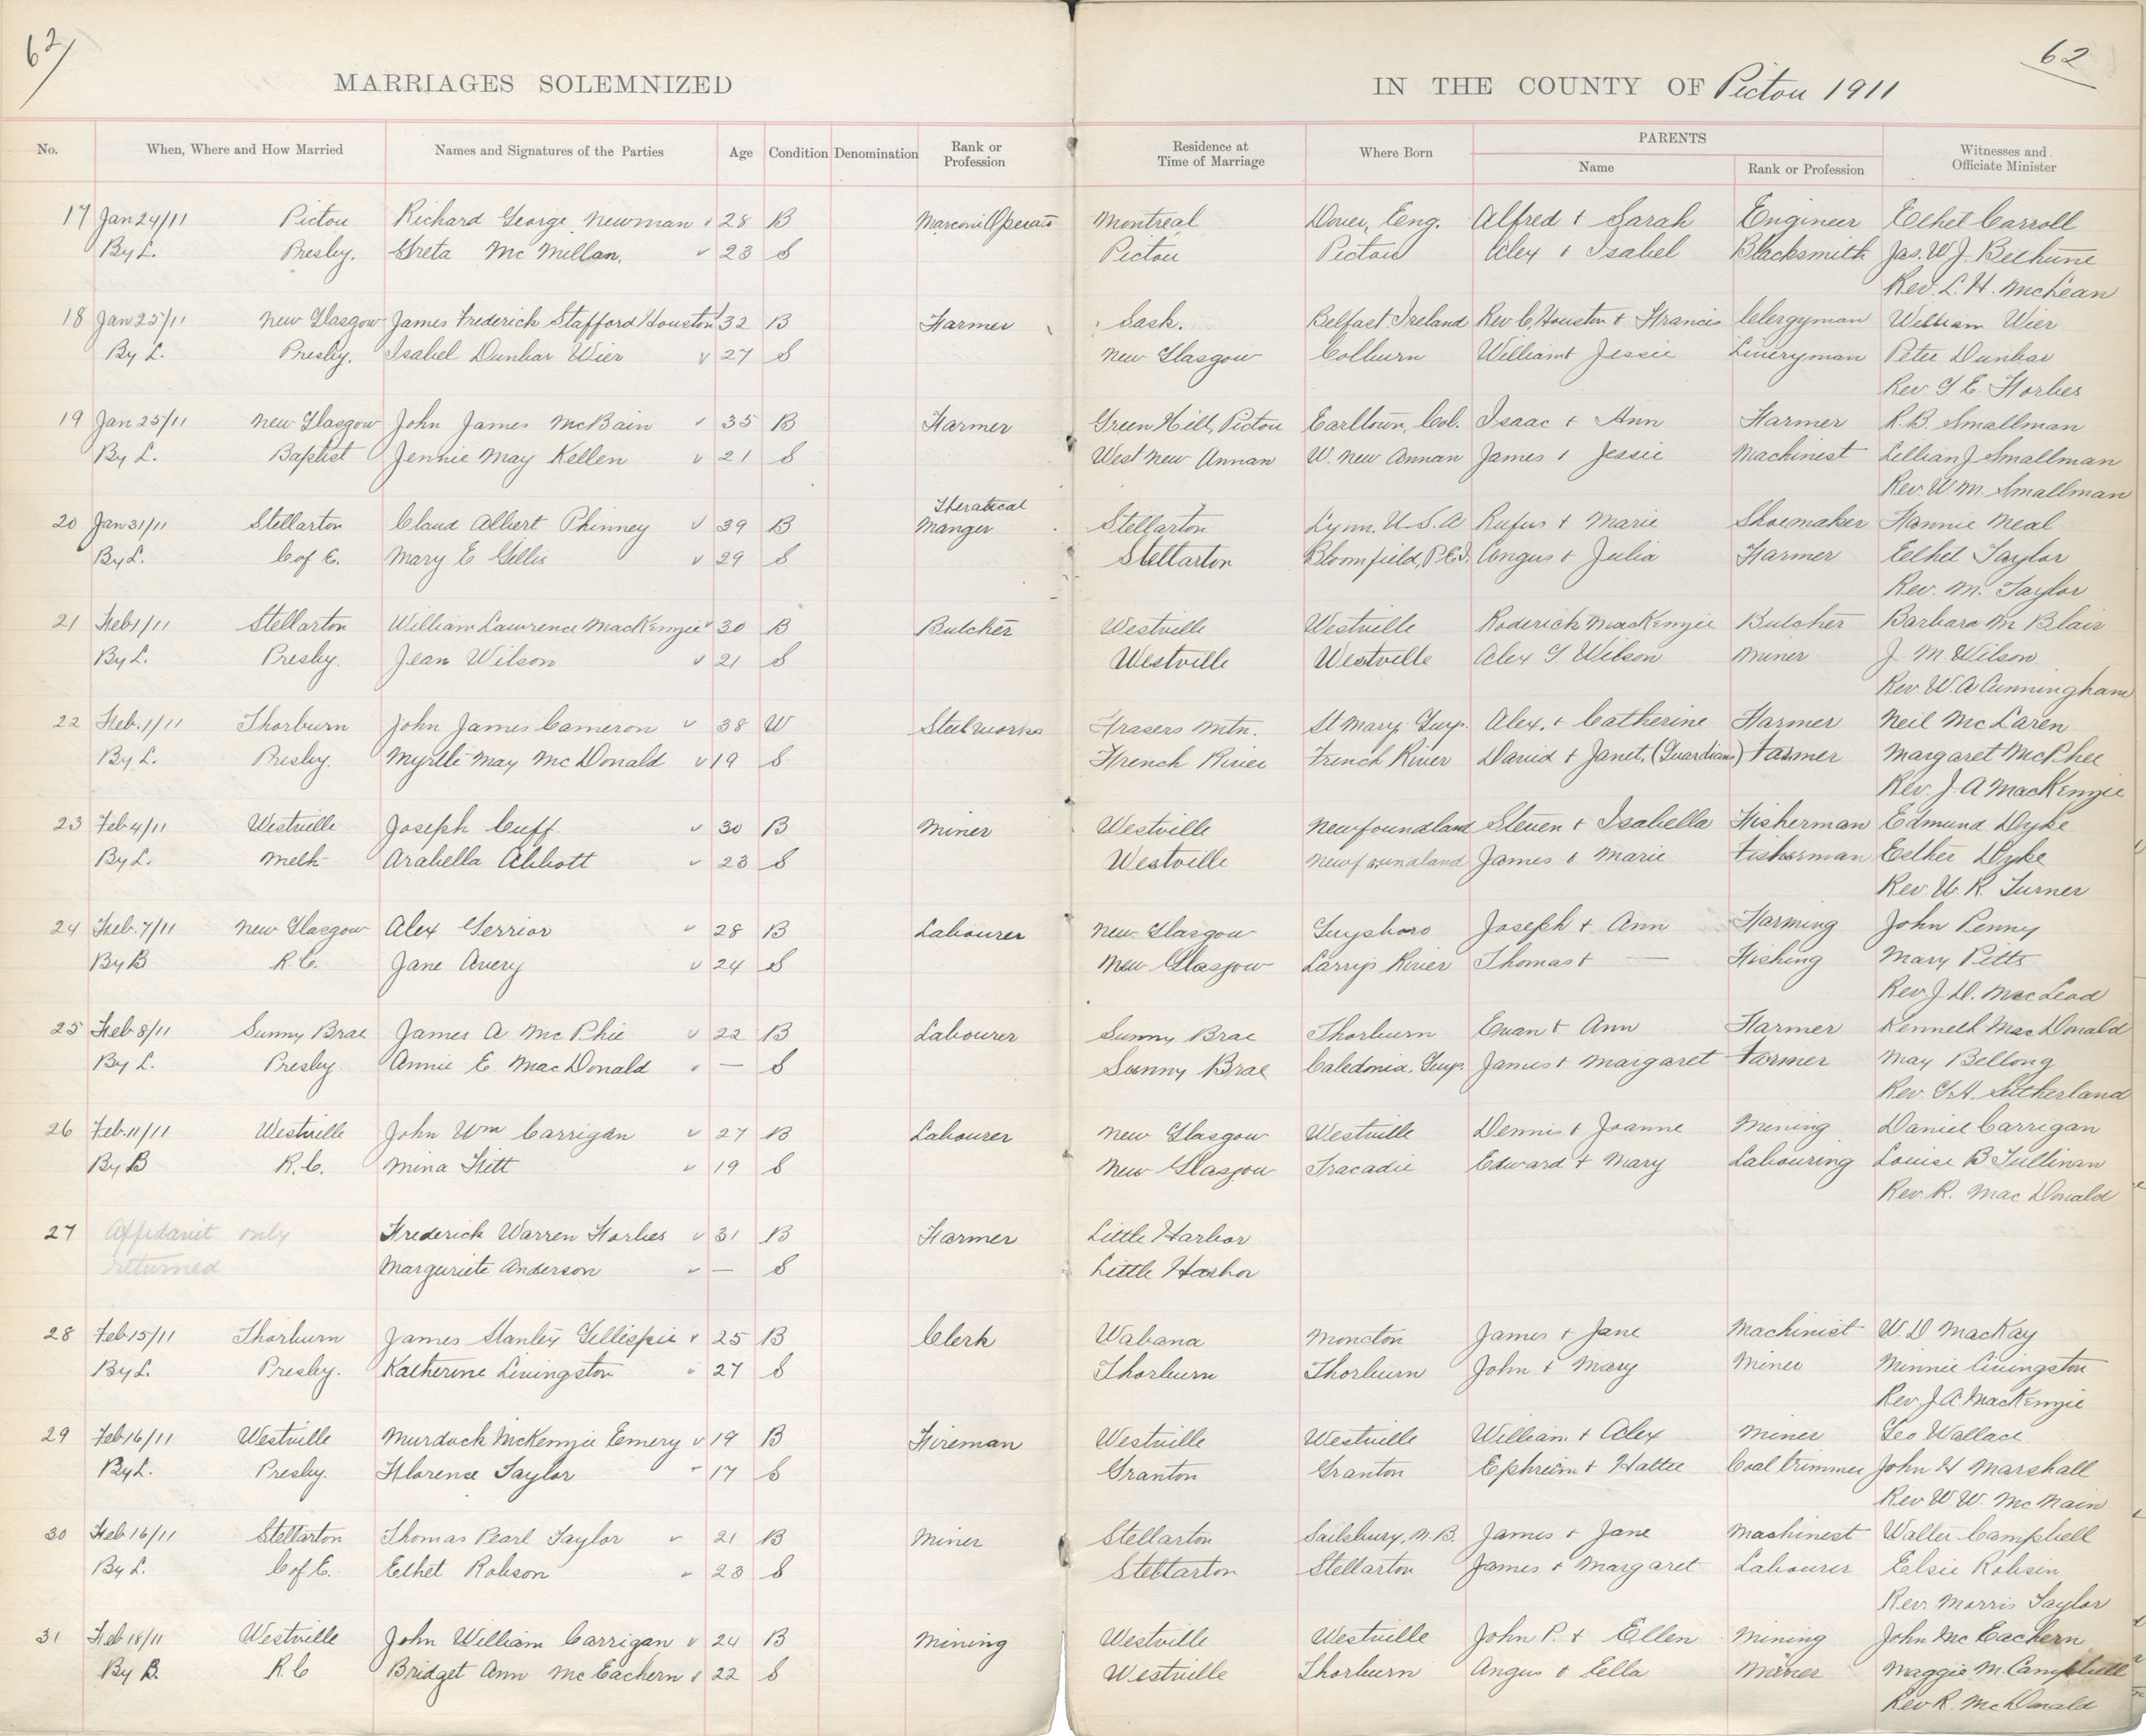 62
62
MARRIAGES SOLEMNIZED IN THE COUNTY OF Pictou 1911
No. When, Where and How Married Names and Signatures of the Parties Age Condition Denomination Rank or Profession Residence at Time of Marriage Where Born PARENTS Name Rank or Profession Witnesses and Officiate Minister
17 Jan 24/11 Pictou Richard George Newman 28 B Marconi Operato Montreal Dover, Eng. Alfred + Sarah Engineer Ethel Carroll
By L. Presby. Greta McMillan. 23 S Pictou Pictou Alex + Isabel Blacksmith Jas. W. J. Bethune
Rev. L. H. McLean
18 Jan 25/11 New Glasgow James Frederick Stafford Houston 32 B Farmer Sask. Belfast Ireland Rev C. Houston + Francis Clergyman William Wier
By L. Presby. Isabel Dunbar Wier 27 S New Glasgow Colburn William + Jessie Liveryman Peter Dunbar
Rev. G. E. Forbes
19 Jan 25/11 New Glasgow John James McBain 35 B Farmer Green Hill, Pictou Earltown, Col. Isaac + Ann Farmer R. B. Smallman
By L. Baptist Jennie May Kellen 21 S West New Annan W. New Annan James + Jessie Machinest Lillian J Smallman
Rev. W. M. Smallman
Theratical
20 Jan 31/11 Stellarton Claud Albert Phinney 39 B Manger Stellarton Lynn. U.S.A Rufus + Marie Shoemaker Fannie Neal
By L. C of E. Mary E Gillis 29 S Stellarton Bloomfield, P.E.I. Angus + Julia Farmer Ethel Taylor
Rev. M. Taylor
21 Feb 1/11 Stellarton William Lawrence MacKenzie 30 B Butcher Westville Westville Roderick MacKenzie Butcher Barbara M Blair
By L. Presby. Jean Wilson 21 S Westville Westville Alex G Wilson Miner J. M. Wilson
Rev. W. A Cunningham
22 Feb. 1/11 Thorburn John James Cameron 38 W Steelworks Frasers Mtn. St Mary, Guy. Alex. + Catherine Farmer Neil McLaren
By L. Presby. Myrtle May McDonald 19 S French River French River David + Janet, (Guardians) Farmer Margaret McPhee
Rev. J. A MacKenzie
23 Feb 4/11 Westville Joseph Cuff 30 B Miner Westville Newfoundland Steven + Isabella Fisherman Edmund Dyke
By L. Meth Arabella Abbott 23 S Westville Newfoundland James + Marie Fisherman Esther Dyke
Rev. W. R. Turner
24 Feb. 7/11 New Glasgow Alex Gerrior 28 B Labourer New Glasgow Guysboro Joseph + Ann Farming John Penny
By B R. C. Jane Avery 24 S New Glasgow Larrys River Thomas + — Fishing Mary Pitts
Rev. J. D. MacLeod
25 Feb 8/11 Sunny Brae James A McPhie 22 B Labourer Sunny Brae Thorburn Evan + Ann Farmer Kenneth MacDonald
By L. Presby Annie E MacDonald — S Sunny Brae Caledonia, Guy. James + Margaret Farmer May Bellong
Rev. G. A. Sutherland
26 Feb. 11/11 Westville John Wm Carrigan 27 B Labourer New Glasgow Westville Dennis + Joanne Mining Daniel Carrigan
By B R. C. Mina Fitt 19 S New Glasgow Tracadie Edward + Mary Labouring Louise B Sullivan
Rev. R. MacDonald
27 Affidavit only Frederick Warren Forbes 31 B Farmer Little Harbor
returned Marguriete Anderson — S Little Harbor
28 Feb 15/11 Thorburn James Stanley Gillispie 25 B Clerk Wabana Moncton James + Jane Machinist W. D MacKay
By L. Presby. Katherine Livingston 27 S Thorburn Thorburn John + Mary Miner Minnie Livingston
Rev J. A. MacKenzie
29 Feb 16/11 Westville Murdock McKenzie Emery 19 B Fireman Westville Westville William + Alex Miner Geo Wallace
By L. Presby. Florence Taylor 17 S Granton Granton Ephreim + Hattie Coal trimmer John H Marshall
Rev W. W. McNain
30 Feb 16/11 Stellarton Thomas Pearl Taylor 21 B Miner Stellarton Sailsbury, N.B. James + Jane Machinest Walter Campbell
By L. C of E. Ethel Robson 23 S Stellarton Stellarton James + Margaret Labourer Elsie Robsin
Rev. Morris Taylor
31 Feb 18/11 Westville John William Carrigan 24 B Mining Westville Westville John P. + Ellen Mining John McEachern
By B. R. C Bridget Ann McEachern 22 S Westville Thorburn Angus + Ella Miner Maggie M. Campbell
Rev R. McDonald